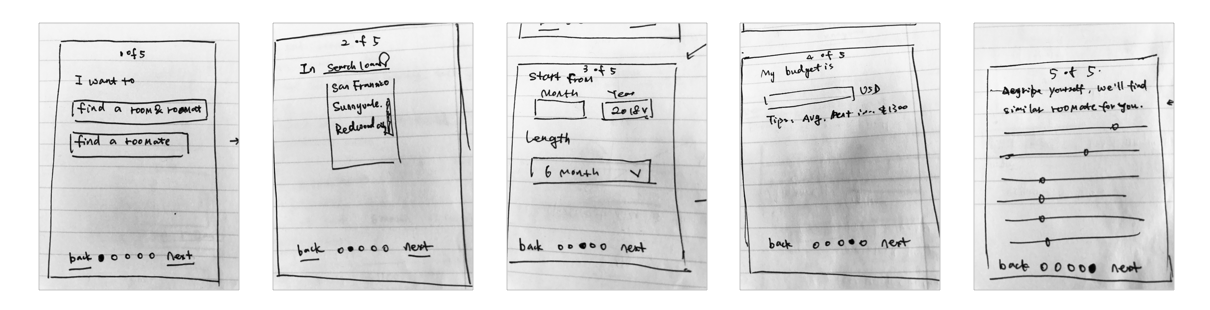 1 of 5
I want to
find a room & roomate
find a roomate
back next
2 of 5
In Search loand
San Fransiso
Sunnyvale.
Redwood
back next
3 of 5
Start from
Month Year
2018
Length
6 Month
back next
4 of 5
My budget is
USD
Tips, Avg, in $1300
back next
5 of 5.
Describe yourself, we'll find
similar roomate for you.
back next